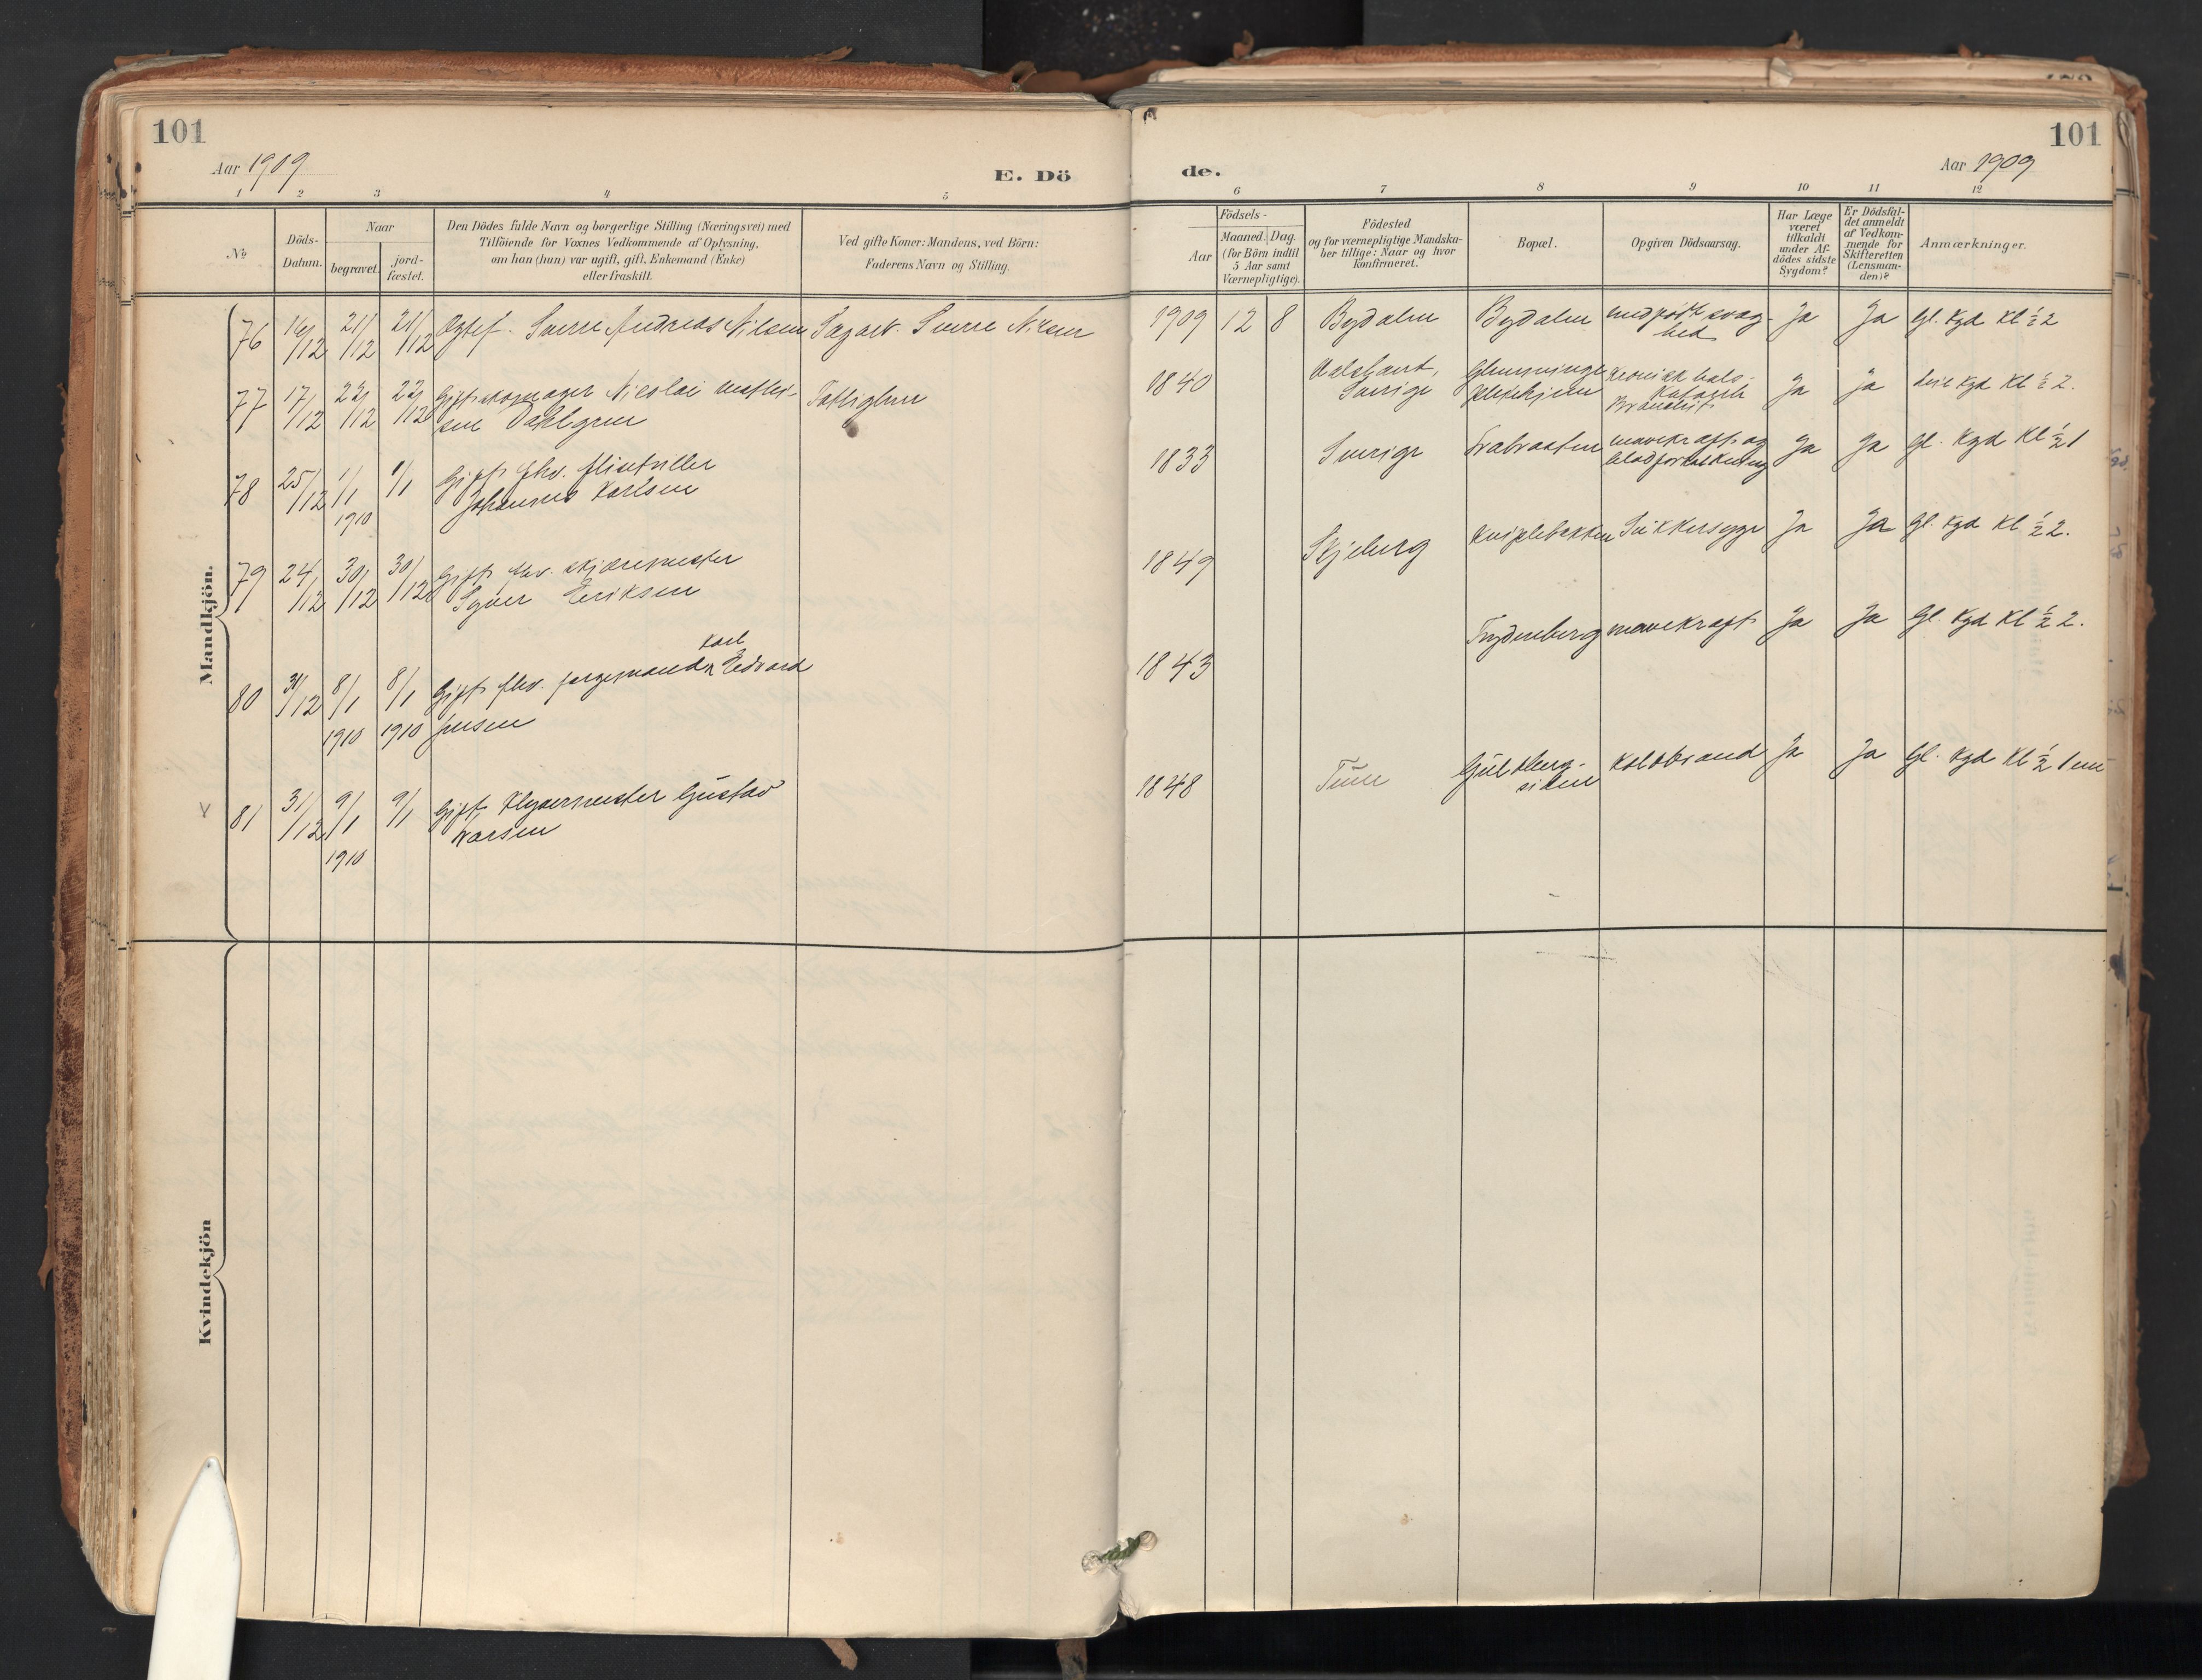 101
Aar 1909
E. Dö
1 2 3 4 5
No
Döds-
Datum.
Naar
begravet.
jord-
fæstet.
Den Dödes fulde Navn og borgerlige Stilling (Næringsvei) med
Tilföiende for Voxnes Vedkommende af Oplysning,
om han (hun) var ugift, gift, Enkemand (Enke)
eller fraskilt.
Ved gifte Koner: Mandens, ved Börn:
Faderens Navn og Stilling.
Mandkjön.
76 16/12 21/12 21/12 Sverre Andreas Nilsen
77 17/12 22/12 22/12 Gift skomager Nicolai
sen Dahlgren
78 25/12 1/1 1/1 Gift fhv.
1910 Johannes Karlsen
79 24/12 30/12 30/12 Gift fhv. skjæremester
Syver Eriksen
Karl
80 31/12 8/1 8/1 Gift fhv. Edvard
1910 1910 Jensen
81 31/12 9/1 9/1 Gift Gustav
Larsen
1910
Kvindekjön
de.
101
Aar 1909
6 7 8 9 10 11 12
Födsels-
Aar
Maaned. Dag.
(for Börn indtil
5 Aar samt
Værnepligtige).
Födested
og for værnepligtige Mandska-
ber tillige: Naar og hvor
konfirmeret.
Bopæl.
Opgiven Dödsaarsag.
Har Læge
været
tilkaldt
under Af-
dödes sidste
Sygdom?
Er Dödsfal-
det anmeldt
af Vedkom-
mende for
Skifteretten
(Lensman-
den)?
Anmærkninger.
1909 12 8 Bydalen Bydalen medfödt svag-
hed
Ja Ja Gl. Kgd Kl ½ 2
1840 Sverige pleiehjem Kronisk
Ja Ja Kgd Kl ½ 2.
1833 Sverige Ja Ja Gl. Kgd Kl ½ 1
mavekræft og
1849 Skjeberg Sukkersyge Ja Ja Gl. Kgd Kl ½ 2.
1843 Frydenberg mavekræft Ja Ja Gl. Kgd Kl ½ 2.
1848 Tune Koldbrand Ja Ja Gl. Kgd Kl ½ 1